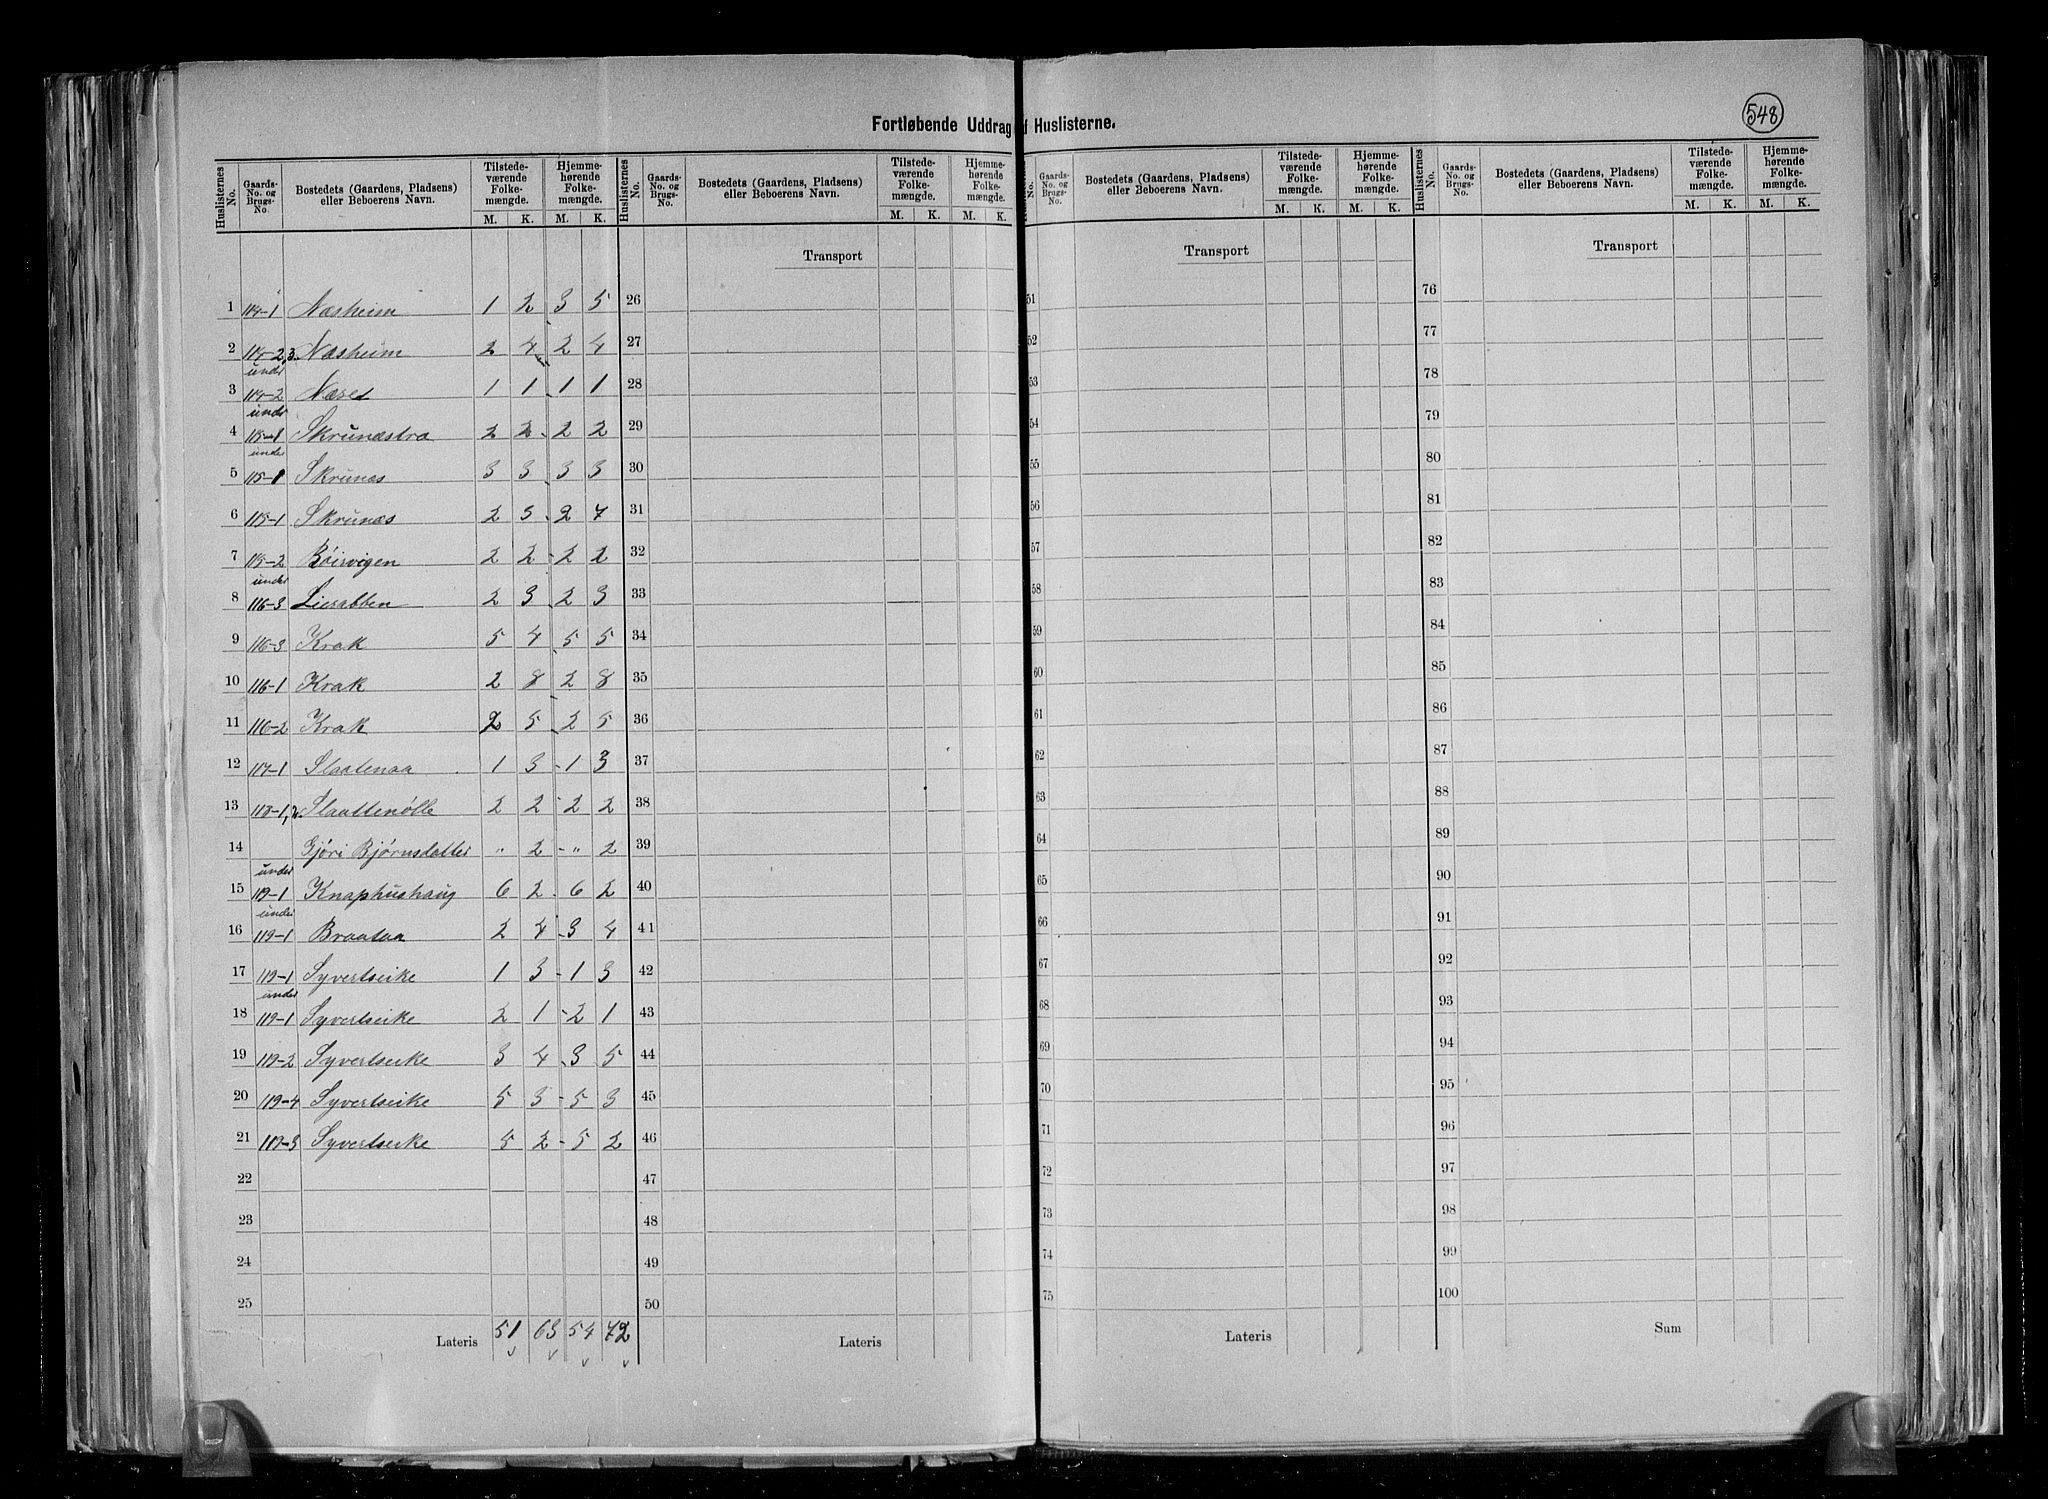 548
Fortløbende Uddrag f Huslisterne.
Huslisternes No. Gaards-No. og Brugs-No. Bostedets (Gaardens, Pladsens) eller Beboerens Navn. Tilstedeværende Folkemængde. M. K. Hjemmehørende Folkemængde. M. K.
Huslisternes No. Gaards-No. og Brugs-No. Bostedets (Gaardens, Pladsens) eller Beboerens Navn. Tilstedeværende Folkemængde. M. K. Hjemmehørende Folkemængde. M. K.
No. Gaards-No. og Brugs-No. Bostedets (Gaardens, Pladsens) eller Beboerens Navn. Tilstedeværende Folkemængde. M. K. Hjemmehørende Folkemængde. M. K.
Huslisternes No. Gaards-No. og Brugs-No. Bostedets (Gaardens, Pladsens) eller Beboerens Navn. Tilstedeværende Folkemængde. M. K. Hjemmehørende Folkemængde. M. K.
Transport Transport Transport
1 114-1 Næsheim 1 2 3 5 26 51 76
2 114-2,3 Næsheim 2 4 2 4 27 52 77
under
3 114-2 Næset 1 1 1 1 28 53 78
under
4 115-1 Skrunæstra 2 2 - 2 2 29 54 79
under
5 115-1 Skrunæs 3 3 3 3 30 55 80
6 115-1 Skrunæs 2 3 - 2 4 31 56 81
7 115-2 Bøisvigen 2 2 - 2 2 32 57 82
under
8 116-3 Lierabben 2 3 - 2 3 33 58 83
9 116-3 Krak 5 4 5 5 34 59 84
10 116-1 Krak 2 8 2 8 35 60 85
11 116-2 Krak 2 5 2 5 36 61 86
12 117-1 Slaatenaa 1 3 - 1 3 37 62 87
13 118-1,2 Slaattenølle 2 2 - 2 2 38 63 88
14 Gjøri Bjørnsdatter " 2 - " 2 39 64 89
under
15 119-1 Knaphushaug 6 2 - 6 2 40 65 90
under
16 119-1 Braataa 2 4 - 3 4 41 66 91
17 119-1 Syvertseike 1 3 - 1 3 42 67 92
under
18 119-1 Syvertseike 2 1 - 2 1 43 68 93
19 119-2 Syvertseike 3 4 - 3 5 44 69 94
20 119-4 Syvertseike 5 3 - 5 3 45 70 95
21 119-3 Syvertseike 5 2 - 5 2 46 71 96
22 47 72 97
23 48 73 98
24 49 74 99
25 50 75 100
Lateris 51 63 54 72 Lateris Lateris Sum